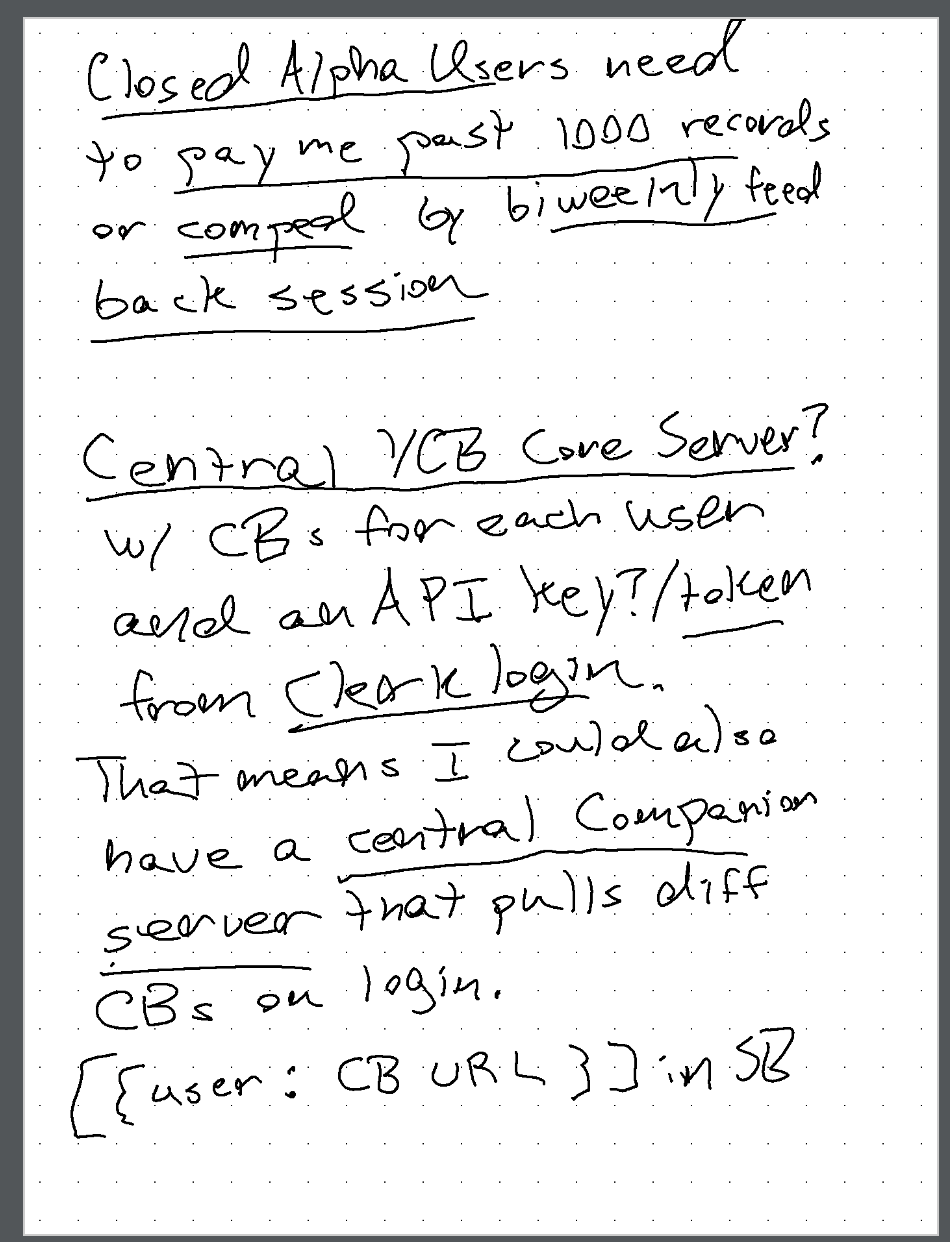 Closed Alpha Users need
to pay me past 1000 records
or comped by biweekly feed
back session
Central YCB Core Server?
w/ CBs for each user
and an API key?/token
from Clerk login.
That means I could also
have a central Companion
server that pulls diff
CBs on login.
[{user: CB URL}] in SB